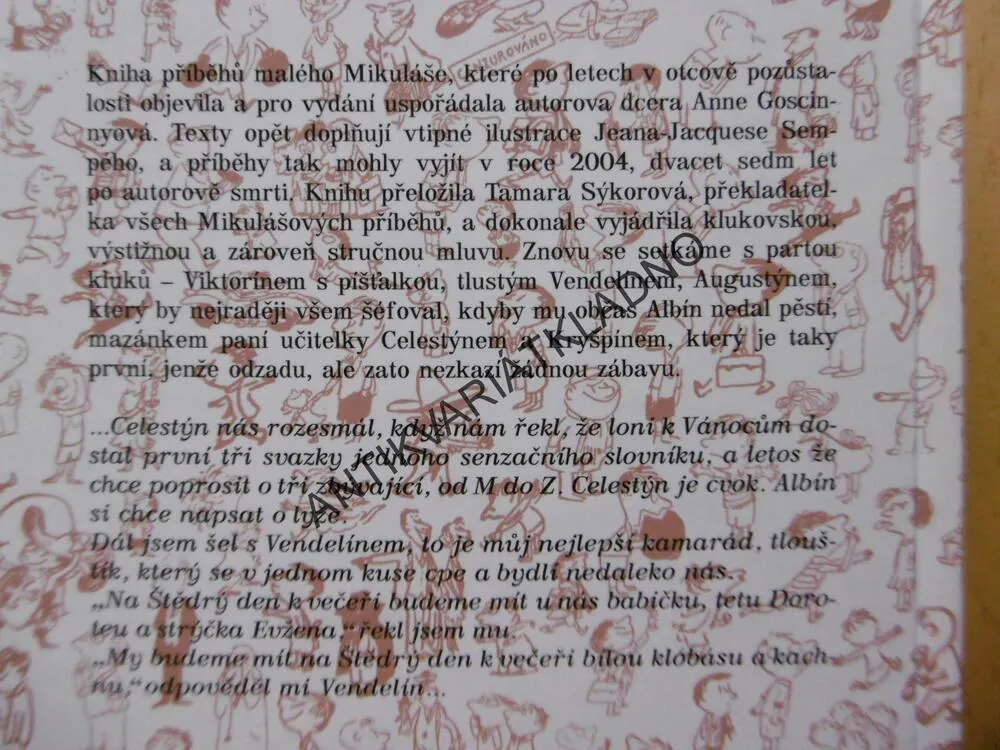 Kniha příběhů malého Mikuláše, které po letech v otcově pozůsta-
losti objevila a pro vydání uspořádala autorova dcera Anne Goscin-
nyová. Texty opět doplňují vtipné ilustrace Jeana-Jacquese Sem-
pého, a příběhy tak mohly vyjít v roce 2004, dvacet sedm let
po autorově smrti. Knihu přeložila Tamara Sýkorová, překladatel-
ka všech Mikulášových příběhů, a dokonale vyjádřila klukovskou,
výstižnou a zároveň stručnou mluvu. Znovu se setkáme s partou
kluků – Viktorínem s píšťalkou, tlustým Vendelínem, Augustýnem,
který by nejraději všem šéfoval, kdyby mu občas Albín nedal pěstí,
mazánkem paní učitelky Celestýnem a Kryšpínem, který je taky
první, jenže odzadu, ale zato nezkazí žádnou zábavu.
...Celestýn nás rozesmál, když nám řekl, že loni k Vánocům do-
stal první tři svazky jednoho senzačního slovníku, a letos že
chce poprosit o tři zbývající, od M do Z. Celestýn je cvok. Albín
si chce napsat o lyže.
Dál jsem šel s Vendelínem, to je můj nejlepší kamarád, tlouš-
tík, který se v jednom kuse cpe a bydlí nedaleko nás.
„Na Štědrý den k večeři budeme mít u nás babičku, tetu Doro-
teu a strýčka Evžena,“ řekl jsem mu.
„My budeme mít na Štědrý den k večeři bílou klobásu a kach-
nu,“ odpověděl mi Vendelín...
ANTIKVARIÁT KLADNO